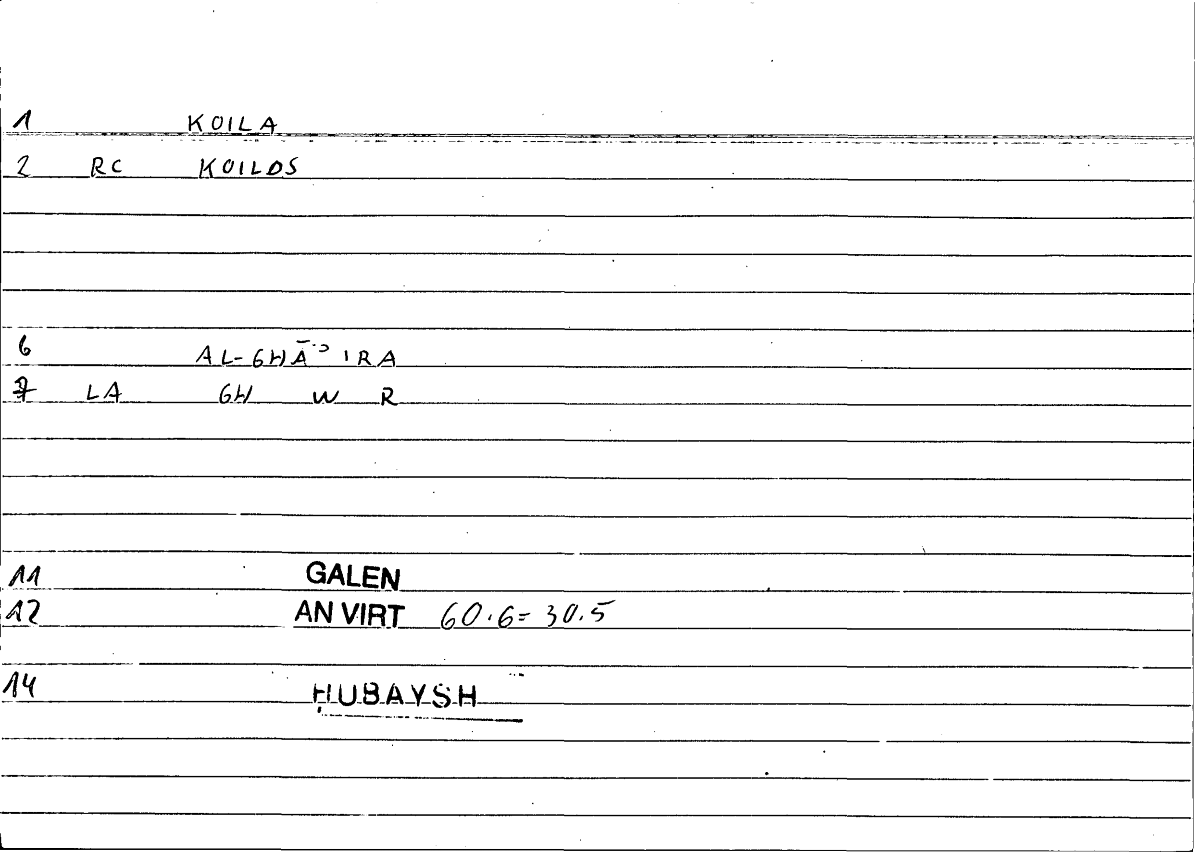 1 KOILA
2 RC KOILOS
6 AL-GHĀʾIRA
7 LA GH W R
11 GALEN
12 AN VIRT 60.6= 30.5
14 ḤUBAYSH